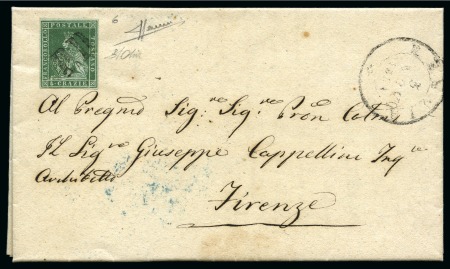 FRANCOBOLLO POSTALE TOSCANO
4 CRAZIE
6
Al Pregmo Sig.re Sig.re Pron Colmo
Il Sigre Giuseppe Cappellini Ingre
Architetto
Firenze